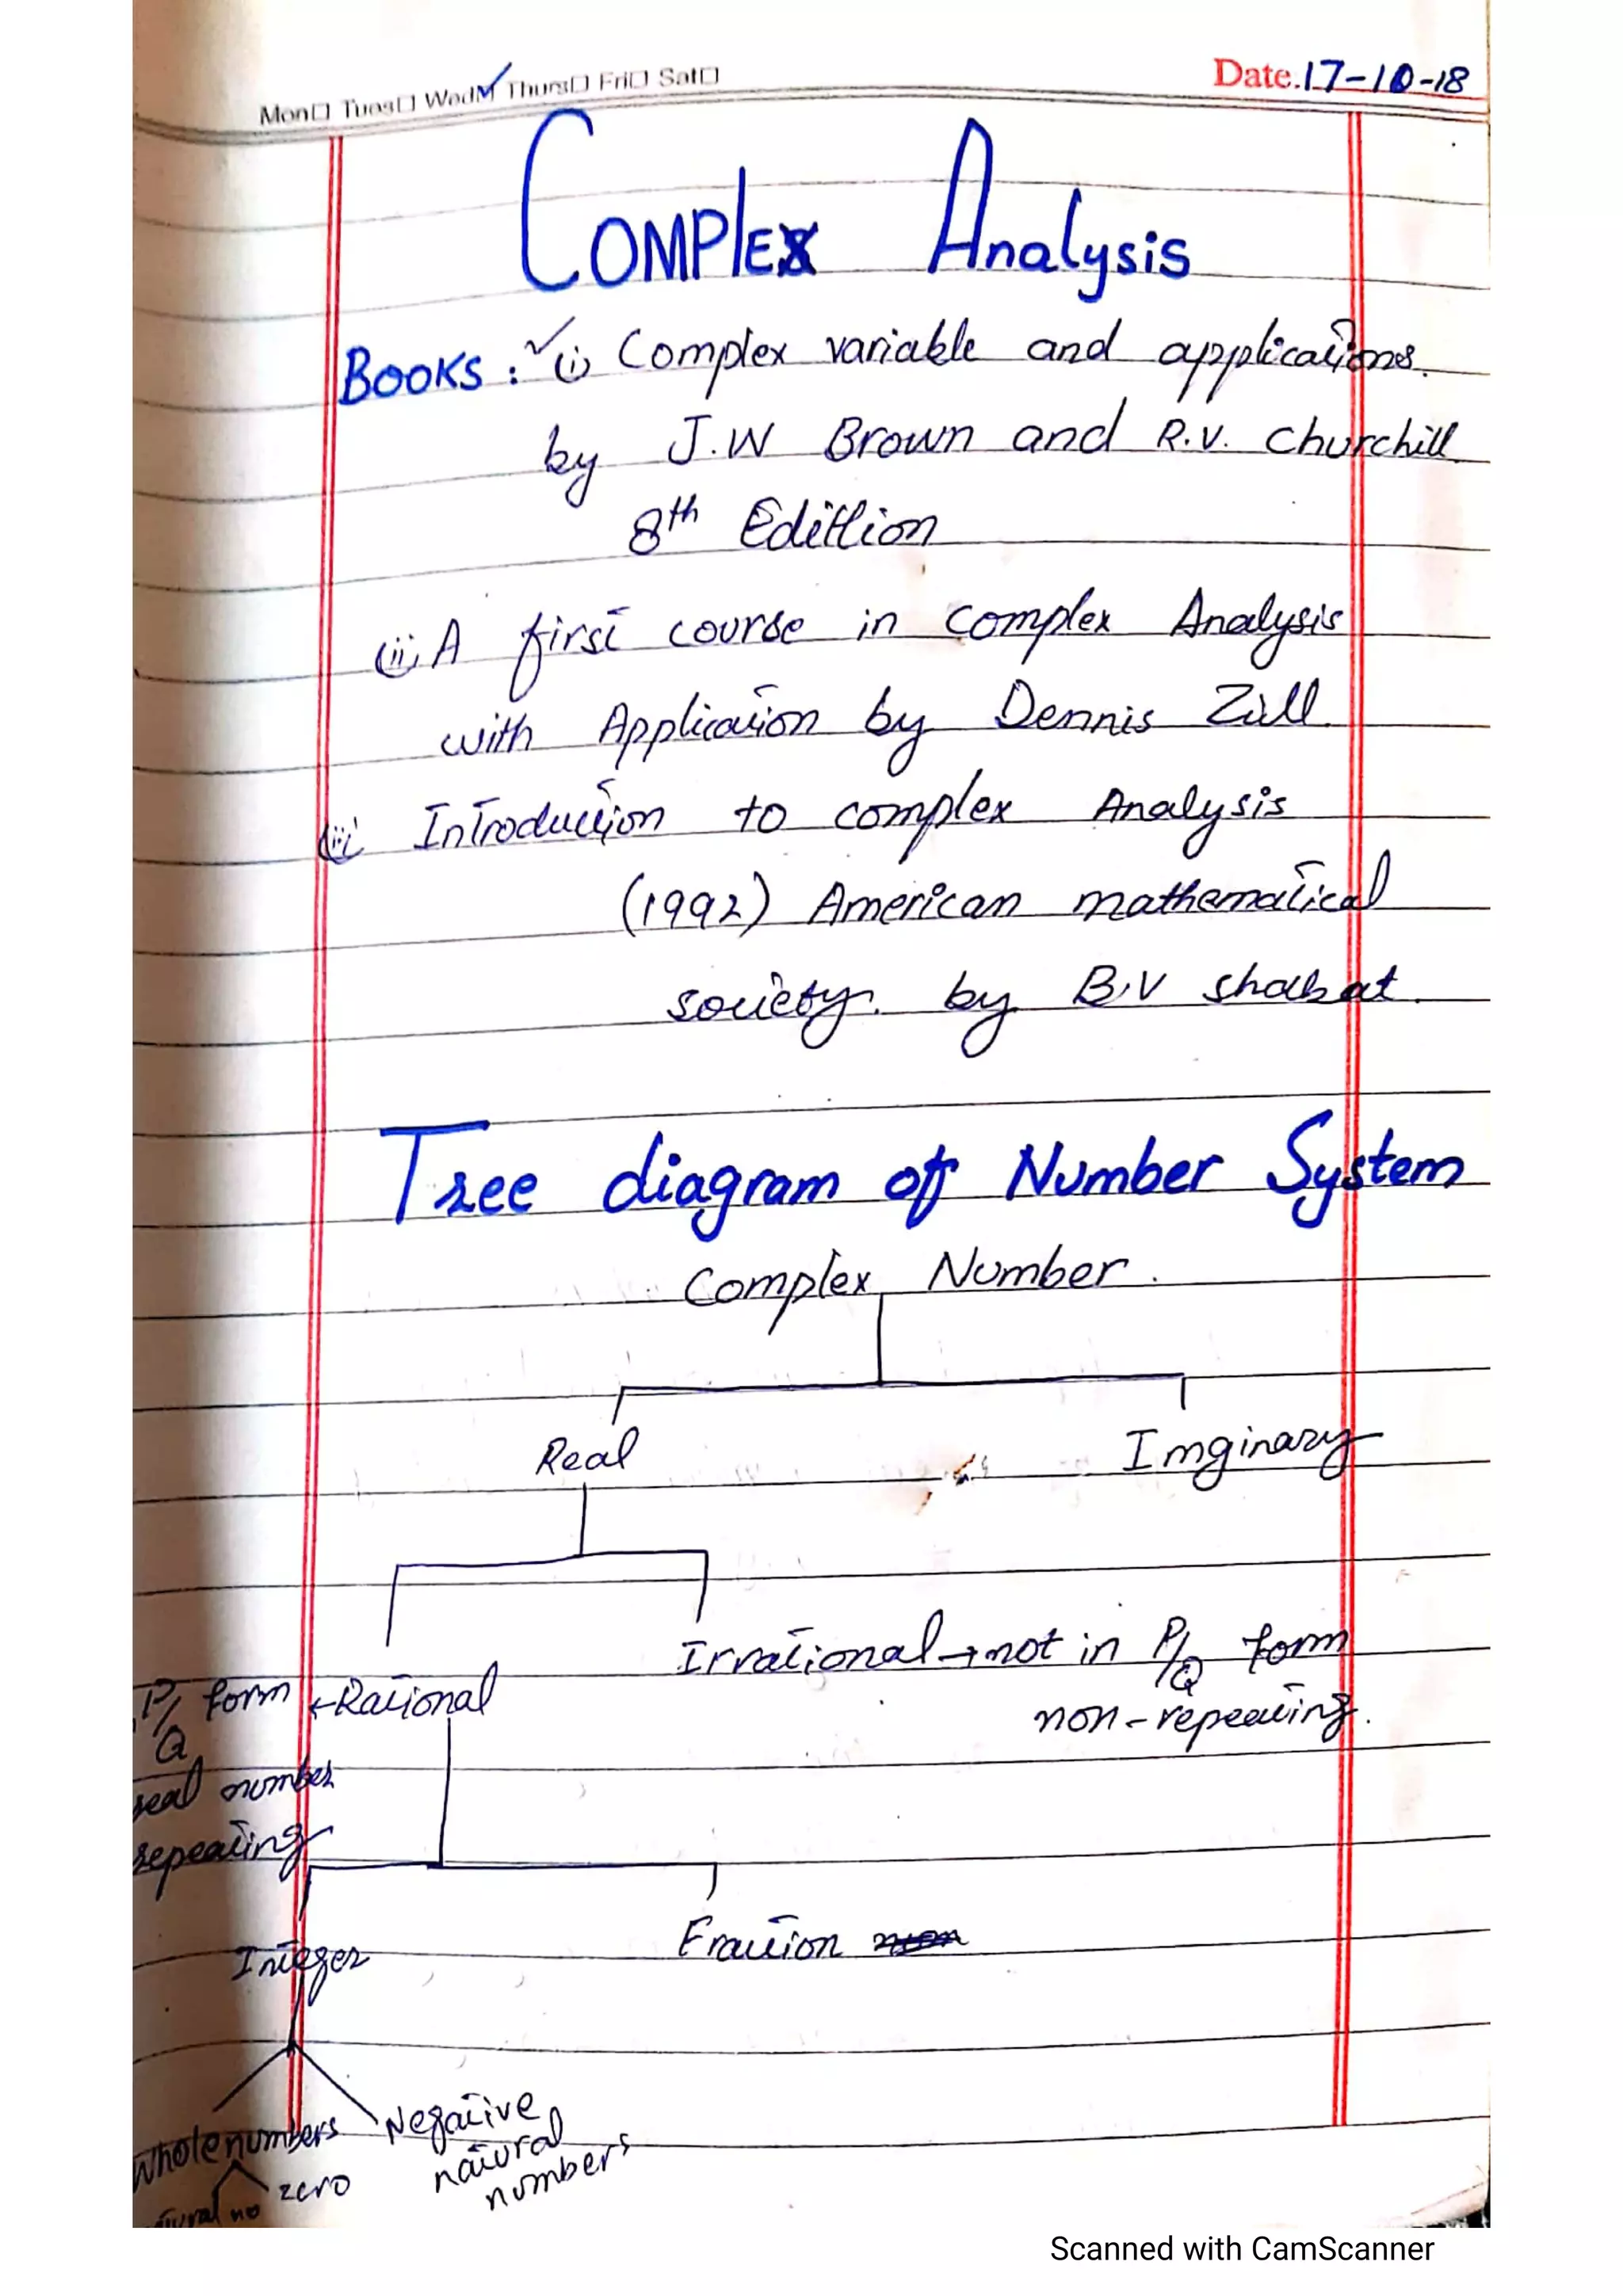 Mon☐ Tues☐ Wed☑ Thurs☐ Fri☐ Sat☐
Date.17-10-18
COMPlEX Analysis
BOOKS : ✓(i) Complex variable and applications.
by J.W Brown and R.V. Churchill
8th Edittion
(ii) A first course in complex Analysis
with Application by Dennis Zill
(iii) Introduction to complex Analysis
(1992) American mathematical
society. by B.V shabat.
Tree diagram of Number System
Complex Number.
Real
Imginary
Irrational → not in P/Q form
non-repeating.
P/Q form ← Rational
real number
repeating
Integer
Fraction
Whole numbers
Negative
natural
numbers
zero
no
Scanned with CamScanner